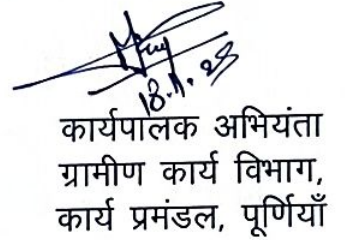 18.11.25
कार्यपालक अभियंता
ग्रामीण कार्य विभाग,
कार्य प्रमंडल, पूर्णियाँ